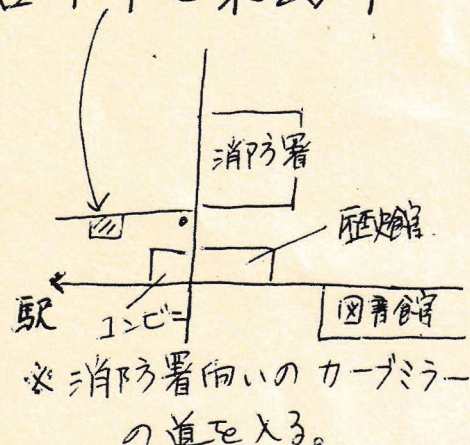 消防署
歴史館
駅
コンビニ
図書館
※消防署向いのカーブミラー
の道を入る。